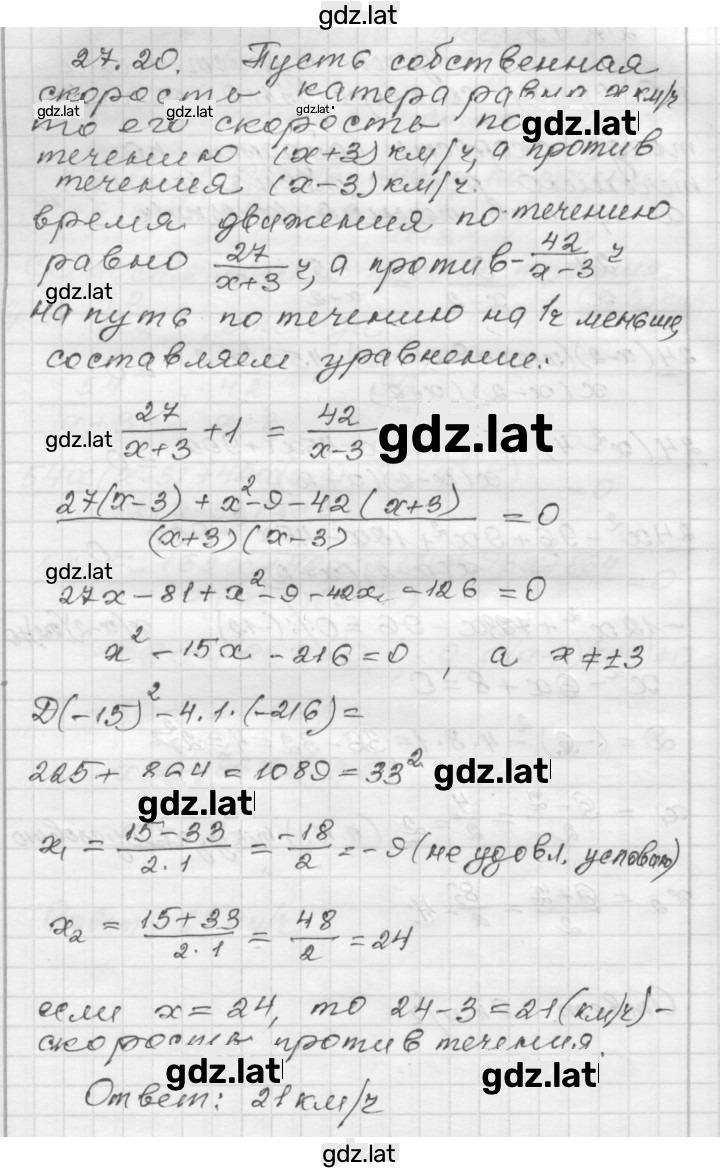 gdz.lat
27.20. Пусть собственная
скорость катера равна x км/ч
gdz.lat gdz.lat gdz.lat
то его скорость по gdz.lat
течению (x+3) км/ч, а против
течения (x-3) км/ч.
время движения по течению
равно 27/(x+3) ч, а против - 42/(x-3) ч
gdz.lat
на путь по течению на 1ч меньше,
составляем уравнение:
gdz.lat 27/(x+3) + 1 = 42/(x-3) gdz.lat
(27(x-3) + x²-9-42(x+3))/((x+3)(x-3)) = 0
gdz.lat
27x - 81 + x² - 9 - 42x - 126 = 0
x² - 15x - 216 = 0, а x ≠ ±3
D(-15)² - 4.1.(-216) =
225 + 864 = 1089 = 33² gdz.lat
gdz.lat
x₁ = (15-33)/(2·1) = -18/2 = -9 (не удовл. условию)
x₂ = (15+33)/(2·1) = 48/2 = 24
если x = 24, то 24-3 = 21(км/ч) -
скорость против течения.
gdz.lat gdz.lat
Ответ: 21 км/ч
gdz.lat